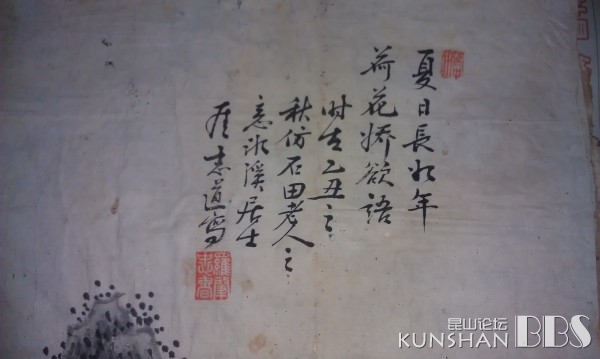 夏日長如年
荷花嬌欲語
时在乙丑之
秋仿石田老人之
意冰溪居士
志道寫
昆山论坛
KUNSHAN BBS